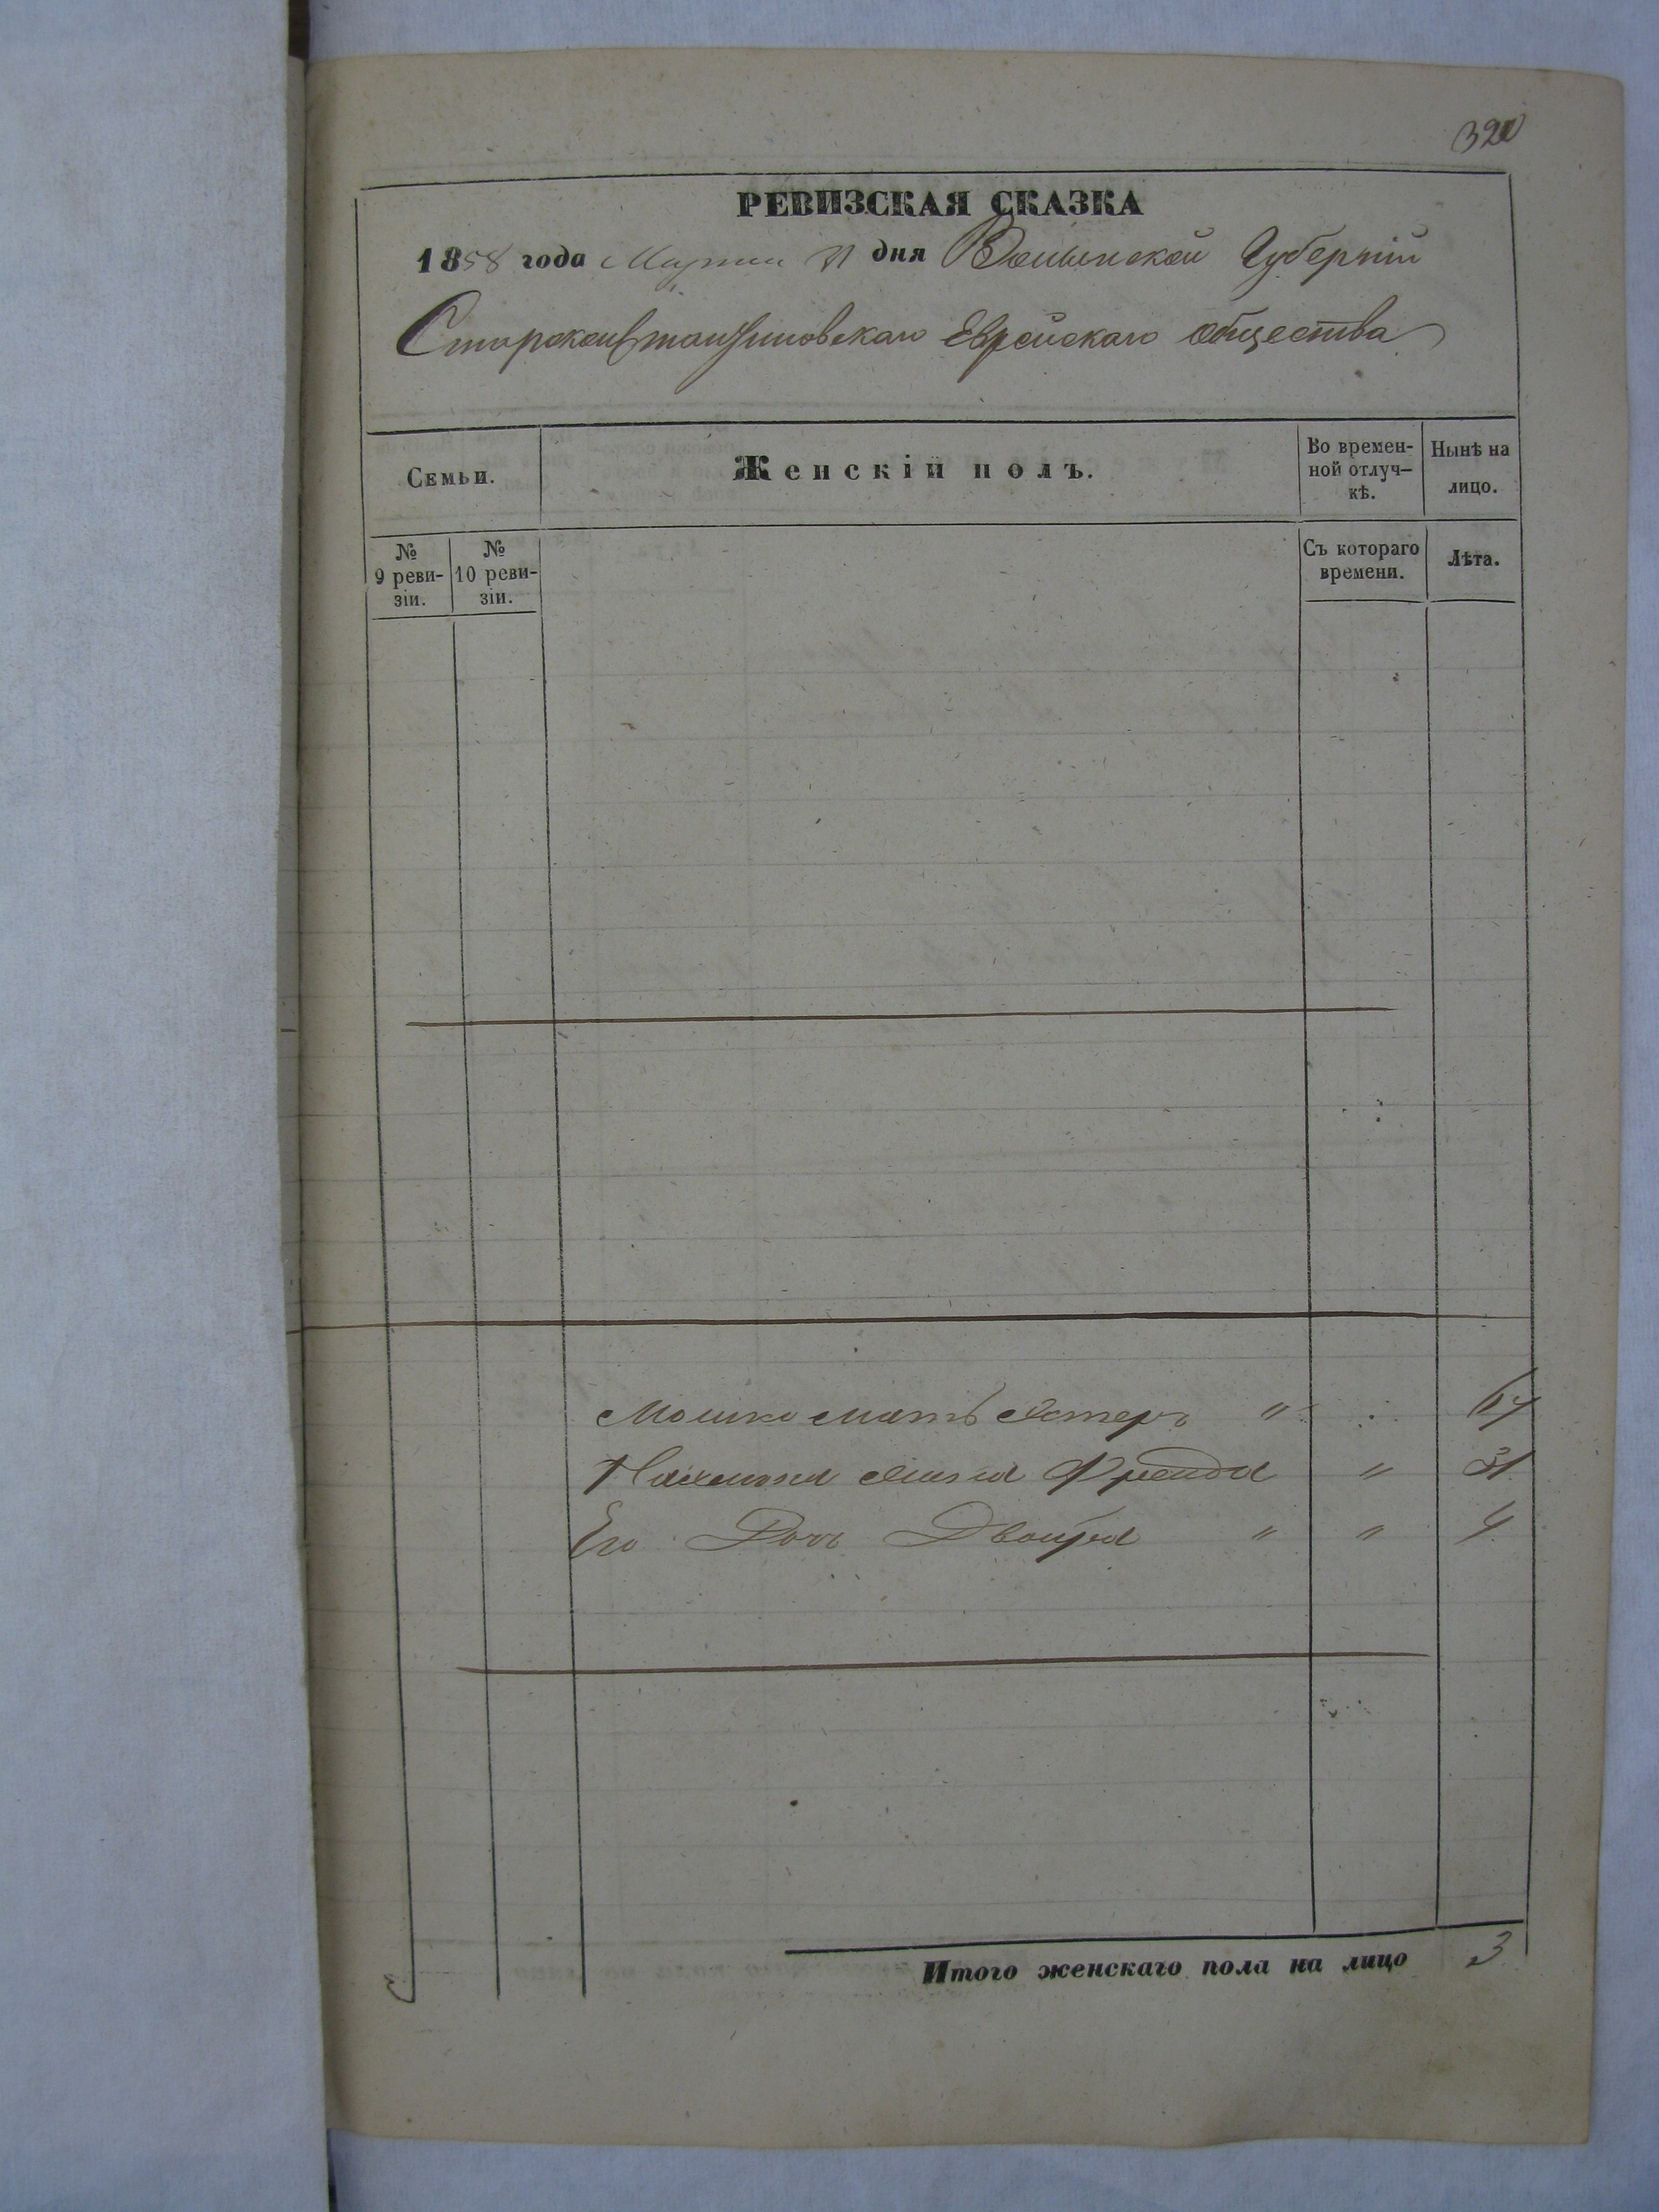 320
РЕВИЗСКАЯ СКАЗКА
1858 года Марта 31 дня Волынской Губерніи
Староконстантиновскаго Еврейскаго общества
Семьи.
Женскій полъ.
Во времен-
ной отлуч-
кѣ.
Нынѣ на
лицо.
№
9 реви-
зіи.
№
10 реви-
зіи.
Съ котораго
времени.
Лѣта.
Мошки мать Эстеръ " 67
Жена Фрейда " 31
Его Дочь Двойра " " 4
Итого женскаго пола на лицо 3